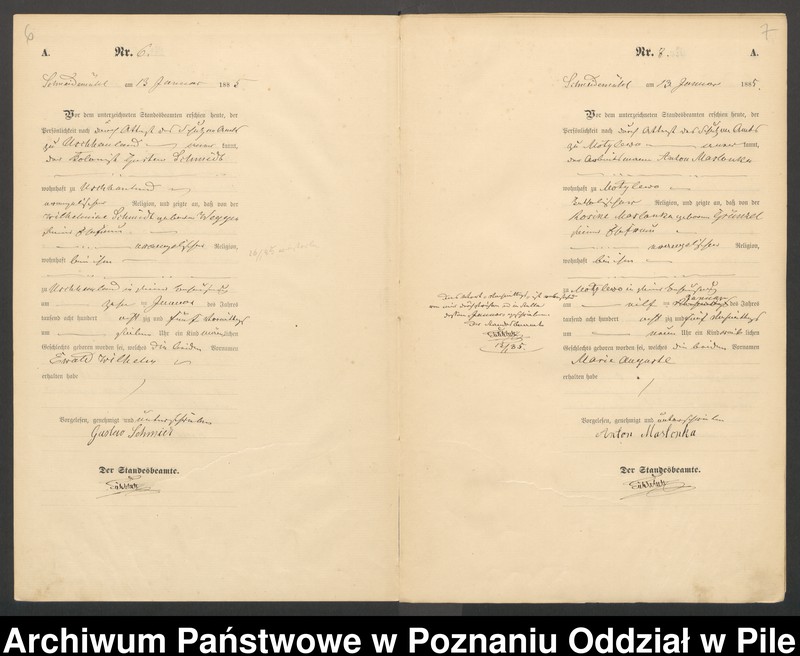 6
A.
Nr. 6.
Schneidemühl am 13 Januar 1885
Vor dem unterzeichneten Standesbeamten erschien heute, der
Persönlichkeit nach durch Attest des Schulzen Amts
zu Uschhauland kannt,
der Kolonist Gustav Schmidt
wohnhaft zu Uschhauland
evangelischer Religion, und zeigte an, daß von der
Wilhelmine Schmidt geborenen
seiner Ehefrau
evangelischer Religion,
wohnhaft bei ihm
zu Uschhauland in seiner Behausung
am zehn ten Januar des Jahres
tausend acht hundert acht zig und fünf Vormittags
um sieben Uhr ein Kind männlichen
Geschlechts geboren worden sei, welches die beiden Vornamen
Ewald Wilhelm
erhalten habe
Vorgelesen, genehmigt und unterschrieben
Gustav Schmidt
Der Standesbeamte.
7
Nr. 7.
A.
Schneidemühl am 13 Januar 1885.
Vor dem unterzeichneten Standesbeamten erschien heute, der
Persönlichkeit nach durch Attest des Schulzen Amts
zu Motylewo kannt,
der Arbeitsmann Anton Maslonka
wohnhaft zu Motylewo
katholischer Religion, und zeigte an, daß von der
Rosine Maslonka geboren
seiner Ehefrau
evangelischer Religion,
wohnhaft bei ihm
zu Motylewo in seiner Behausung
am elf ten Januar des Jahres
tausend acht hundert acht zig und fünf Vormittags
um neun Uhr ein Kind weiblichen
Geschlechts geboren worden sei, welches die beiden Vornamen
Marie Auguste
erhalten habe
Vorgelesen, genehmigt und unterschrieben
Anton Maslonka
Der Standesbeamte.
Januar
Der Standesbeamte
13/1 85.
Archiwum Państwowe w Poznaniu Oddział w Pile